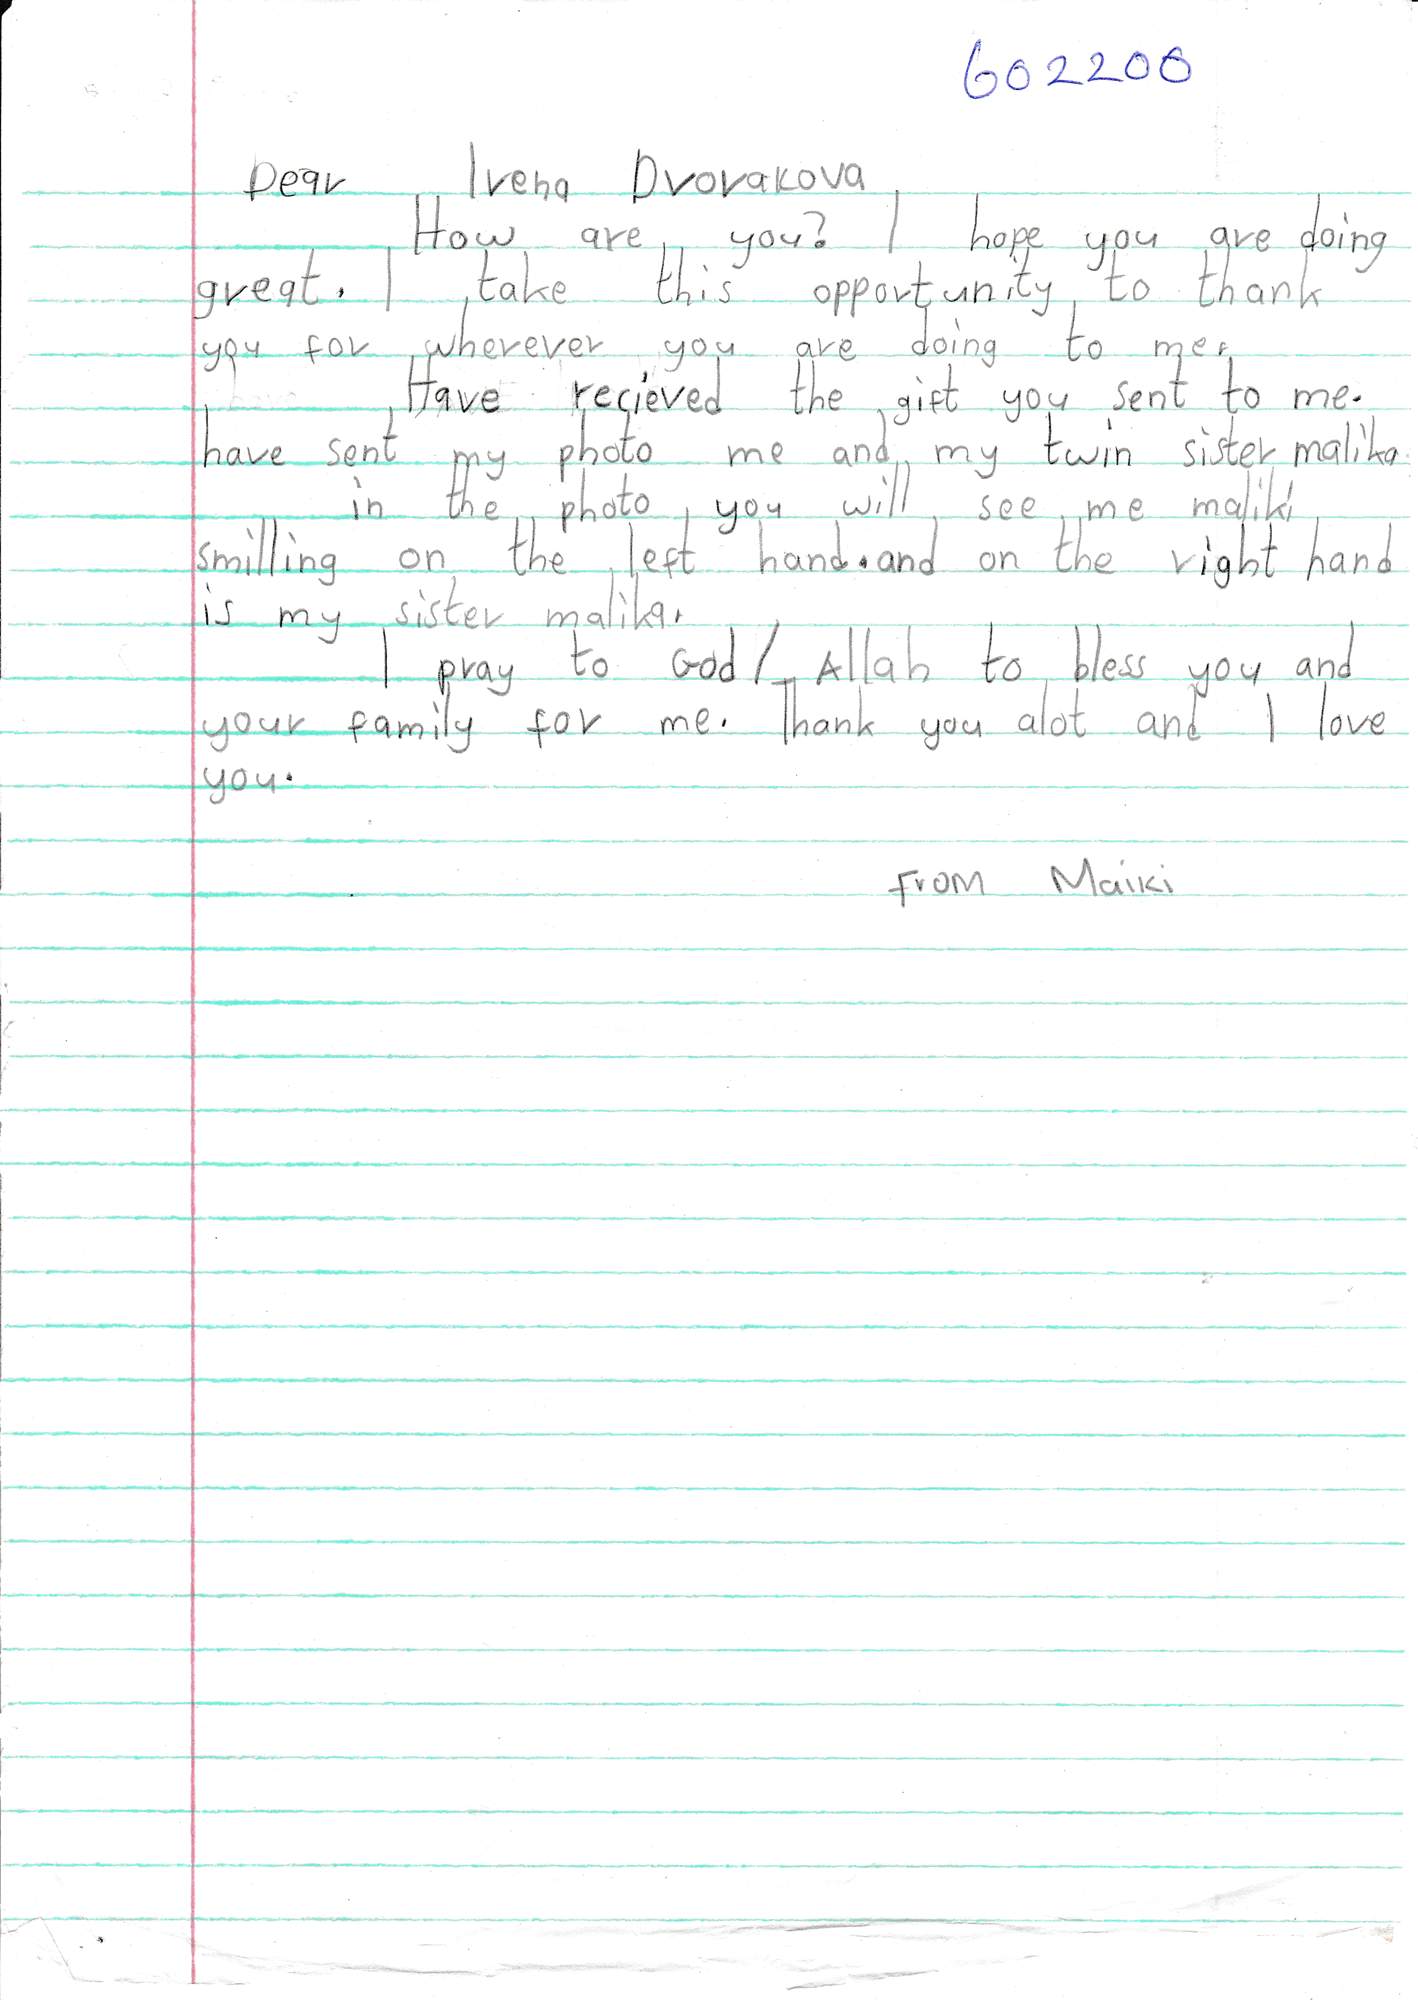 602200
Dear Irena Dvorakova
How are you? I hope you are doing
great. I take this opportunity to thank
you for wherever you are doing to me.
Have recieved the gift you sent to me.
have sent my photo me and my twin sister malika.
in the photo you will see me maliki
smilling on the left hand. and on the right hand
is my sister malika.
I pray to God/ Allah to bless you and
your family for me. Thank you alot and I love
you.
From Maiki